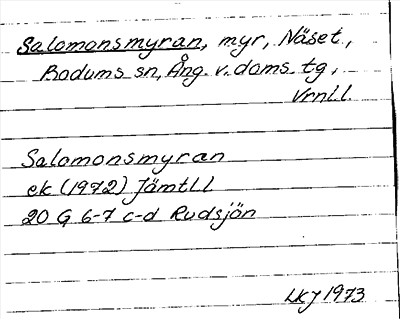 Salomonsmyran, myr, Näset,
Bodums sn, Ång. v. doms. tg,
Vrnl.l.
Salomonsmyran
ek (1972) Jämtll
20 G 6-7 c-d Rudsjön
LKJ 1973